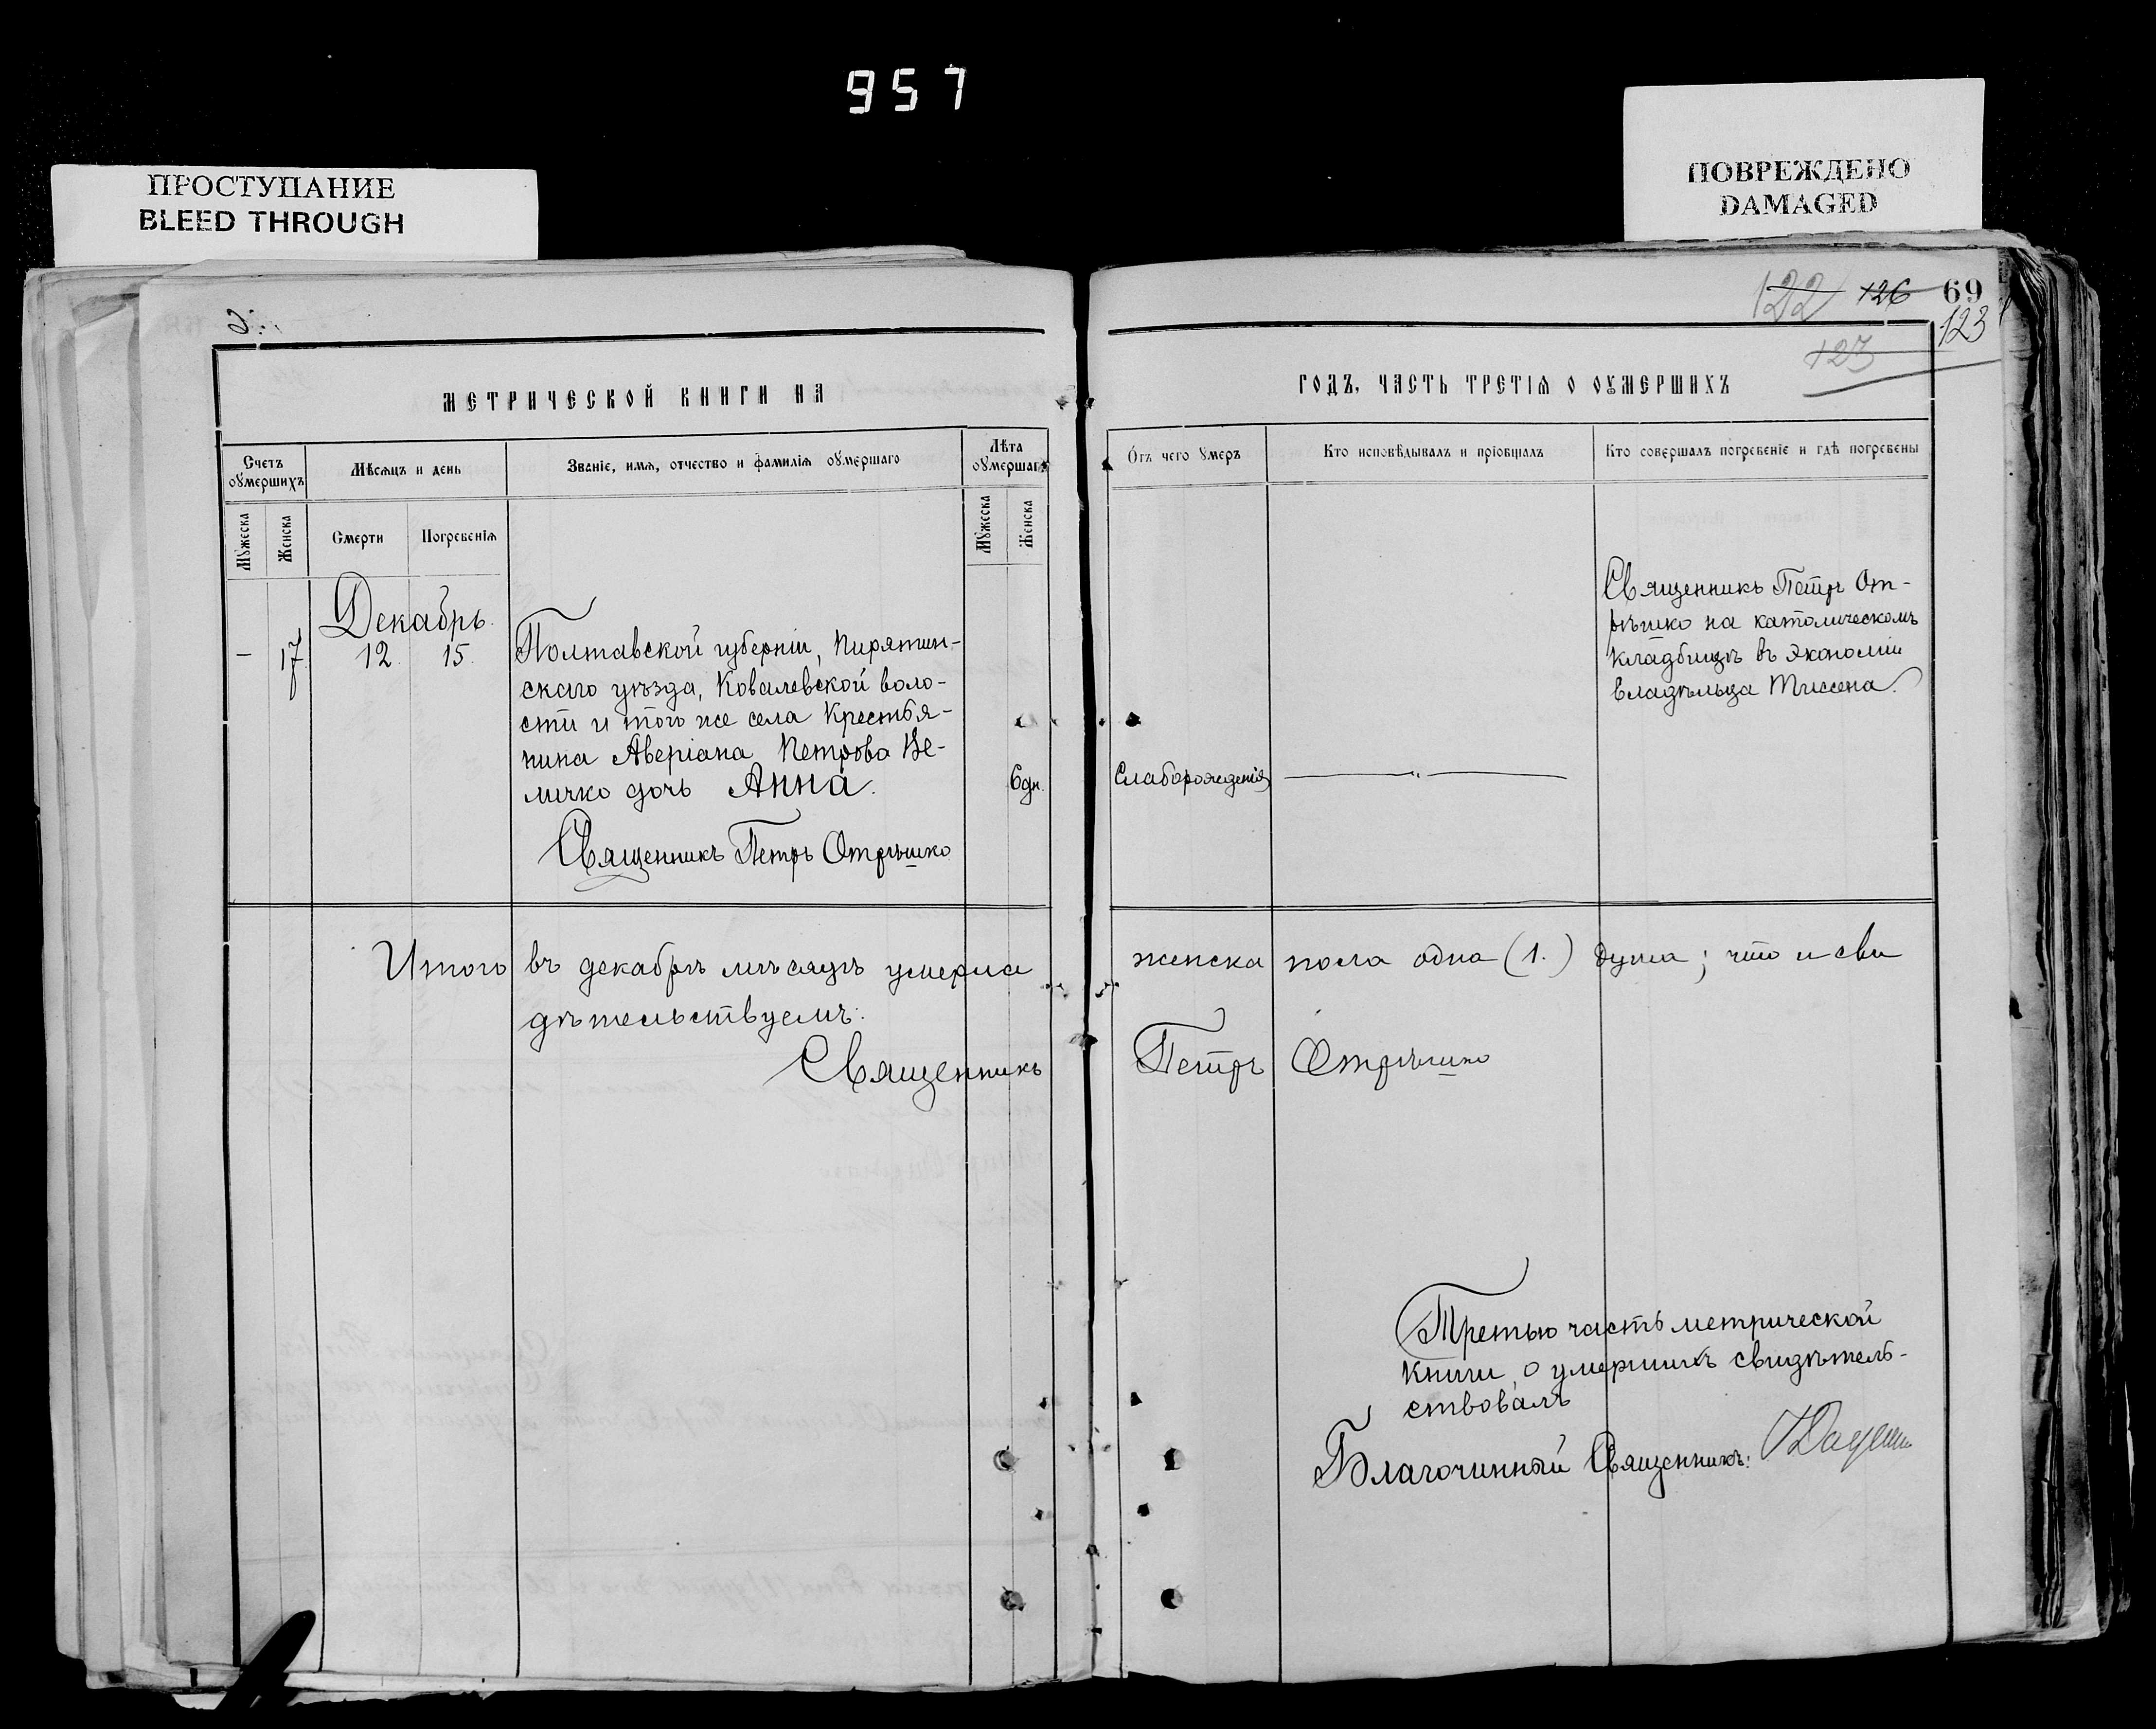 957
ПРОСТУПАНИЕ
BLEED THROUGH
ПОВРЕЖДЕНО
DAMAGED
122 126 69
123
123
МЕТРИЧЕСКОЙ КНИГИ НА
ГОДЪ, ЧАСТЬ ТРЕТІѦ О ОУМЕРШИХЪ
Счетъ оумершихъ
Мѣсѧцъ и день
Званіе, имѧ, отчество и фамилія оумершаго
Лѣта оумершаго
Отъ чего умеръ
Кто исповѣдывалъ и пріобщалъ
Кто совершалъ погребеніе и гдѣ погребены
Мужеска
Женска
Смерти
Погребенія
Мужеска
Женска
Декабрь.
– 17. 12. 15.
Полтавской губерніи, Пирятин-
скаго уѣзда, Ковалевской воло-
сти и того же села Крестья-
нина Аверіана Петрова Ве-
личко дочь Анна.
Священникъ Петръ Отрѣшко
6 дн.
Слаборожденія
Священникъ Петръ От-
рѣшко на католическомъ
кладбищѣ въ экономіи
владѣльца Тиссена.
Итого въ декабрѣ мѣсяцѣ умерла женска пола одна (1.) душа; что и сви
дѣтельствуемъ:
Священникъ Петръ Отрѣшко
Третью часть метрической
книги о умершихъ свидѣтель-
ствовалъ
Благочинный Священникъ: